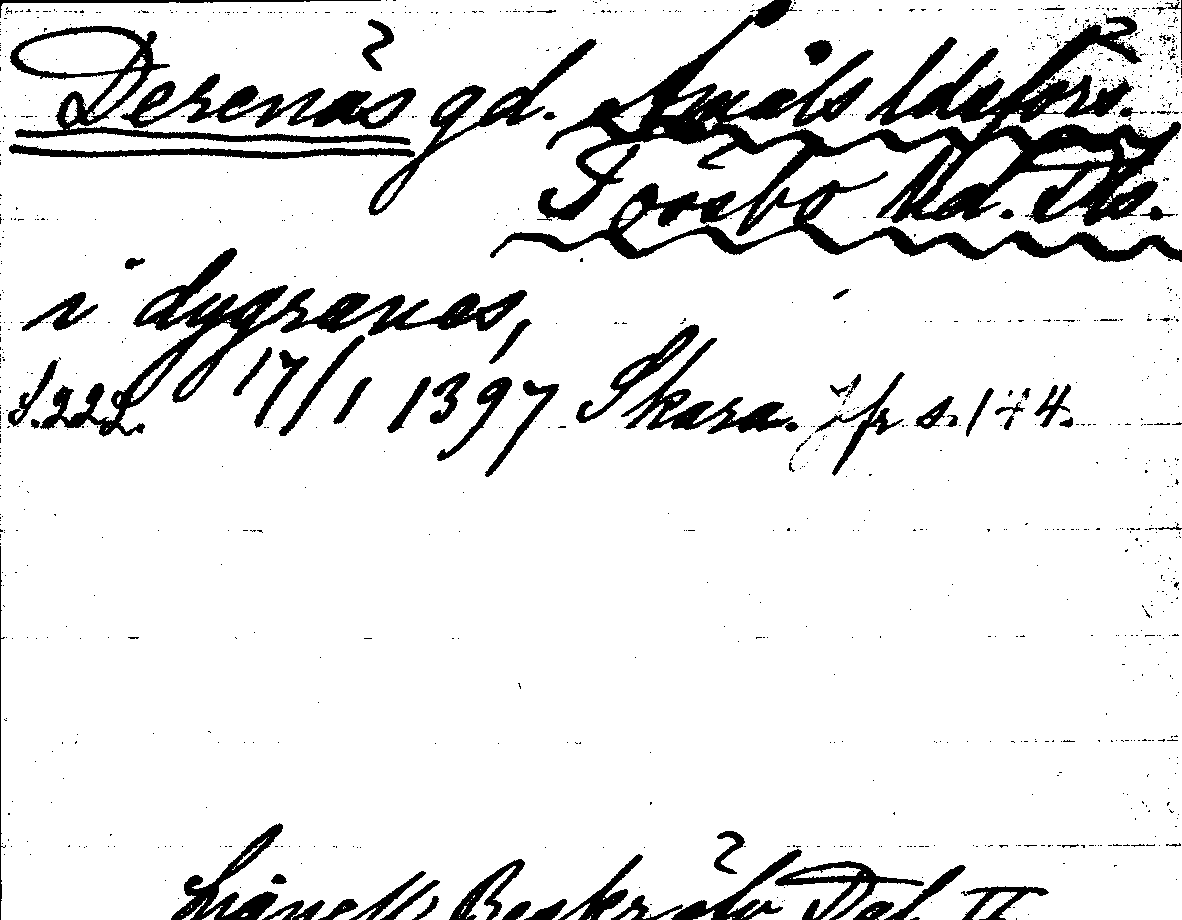 Derenäs gd. Åmåls ldsförs.
Tössbo hd. Dls.
i dygranæs,
S.222. 17/1 1397 Skara. Jfr s. 174.
Lignell, Beskr öfv Dal II